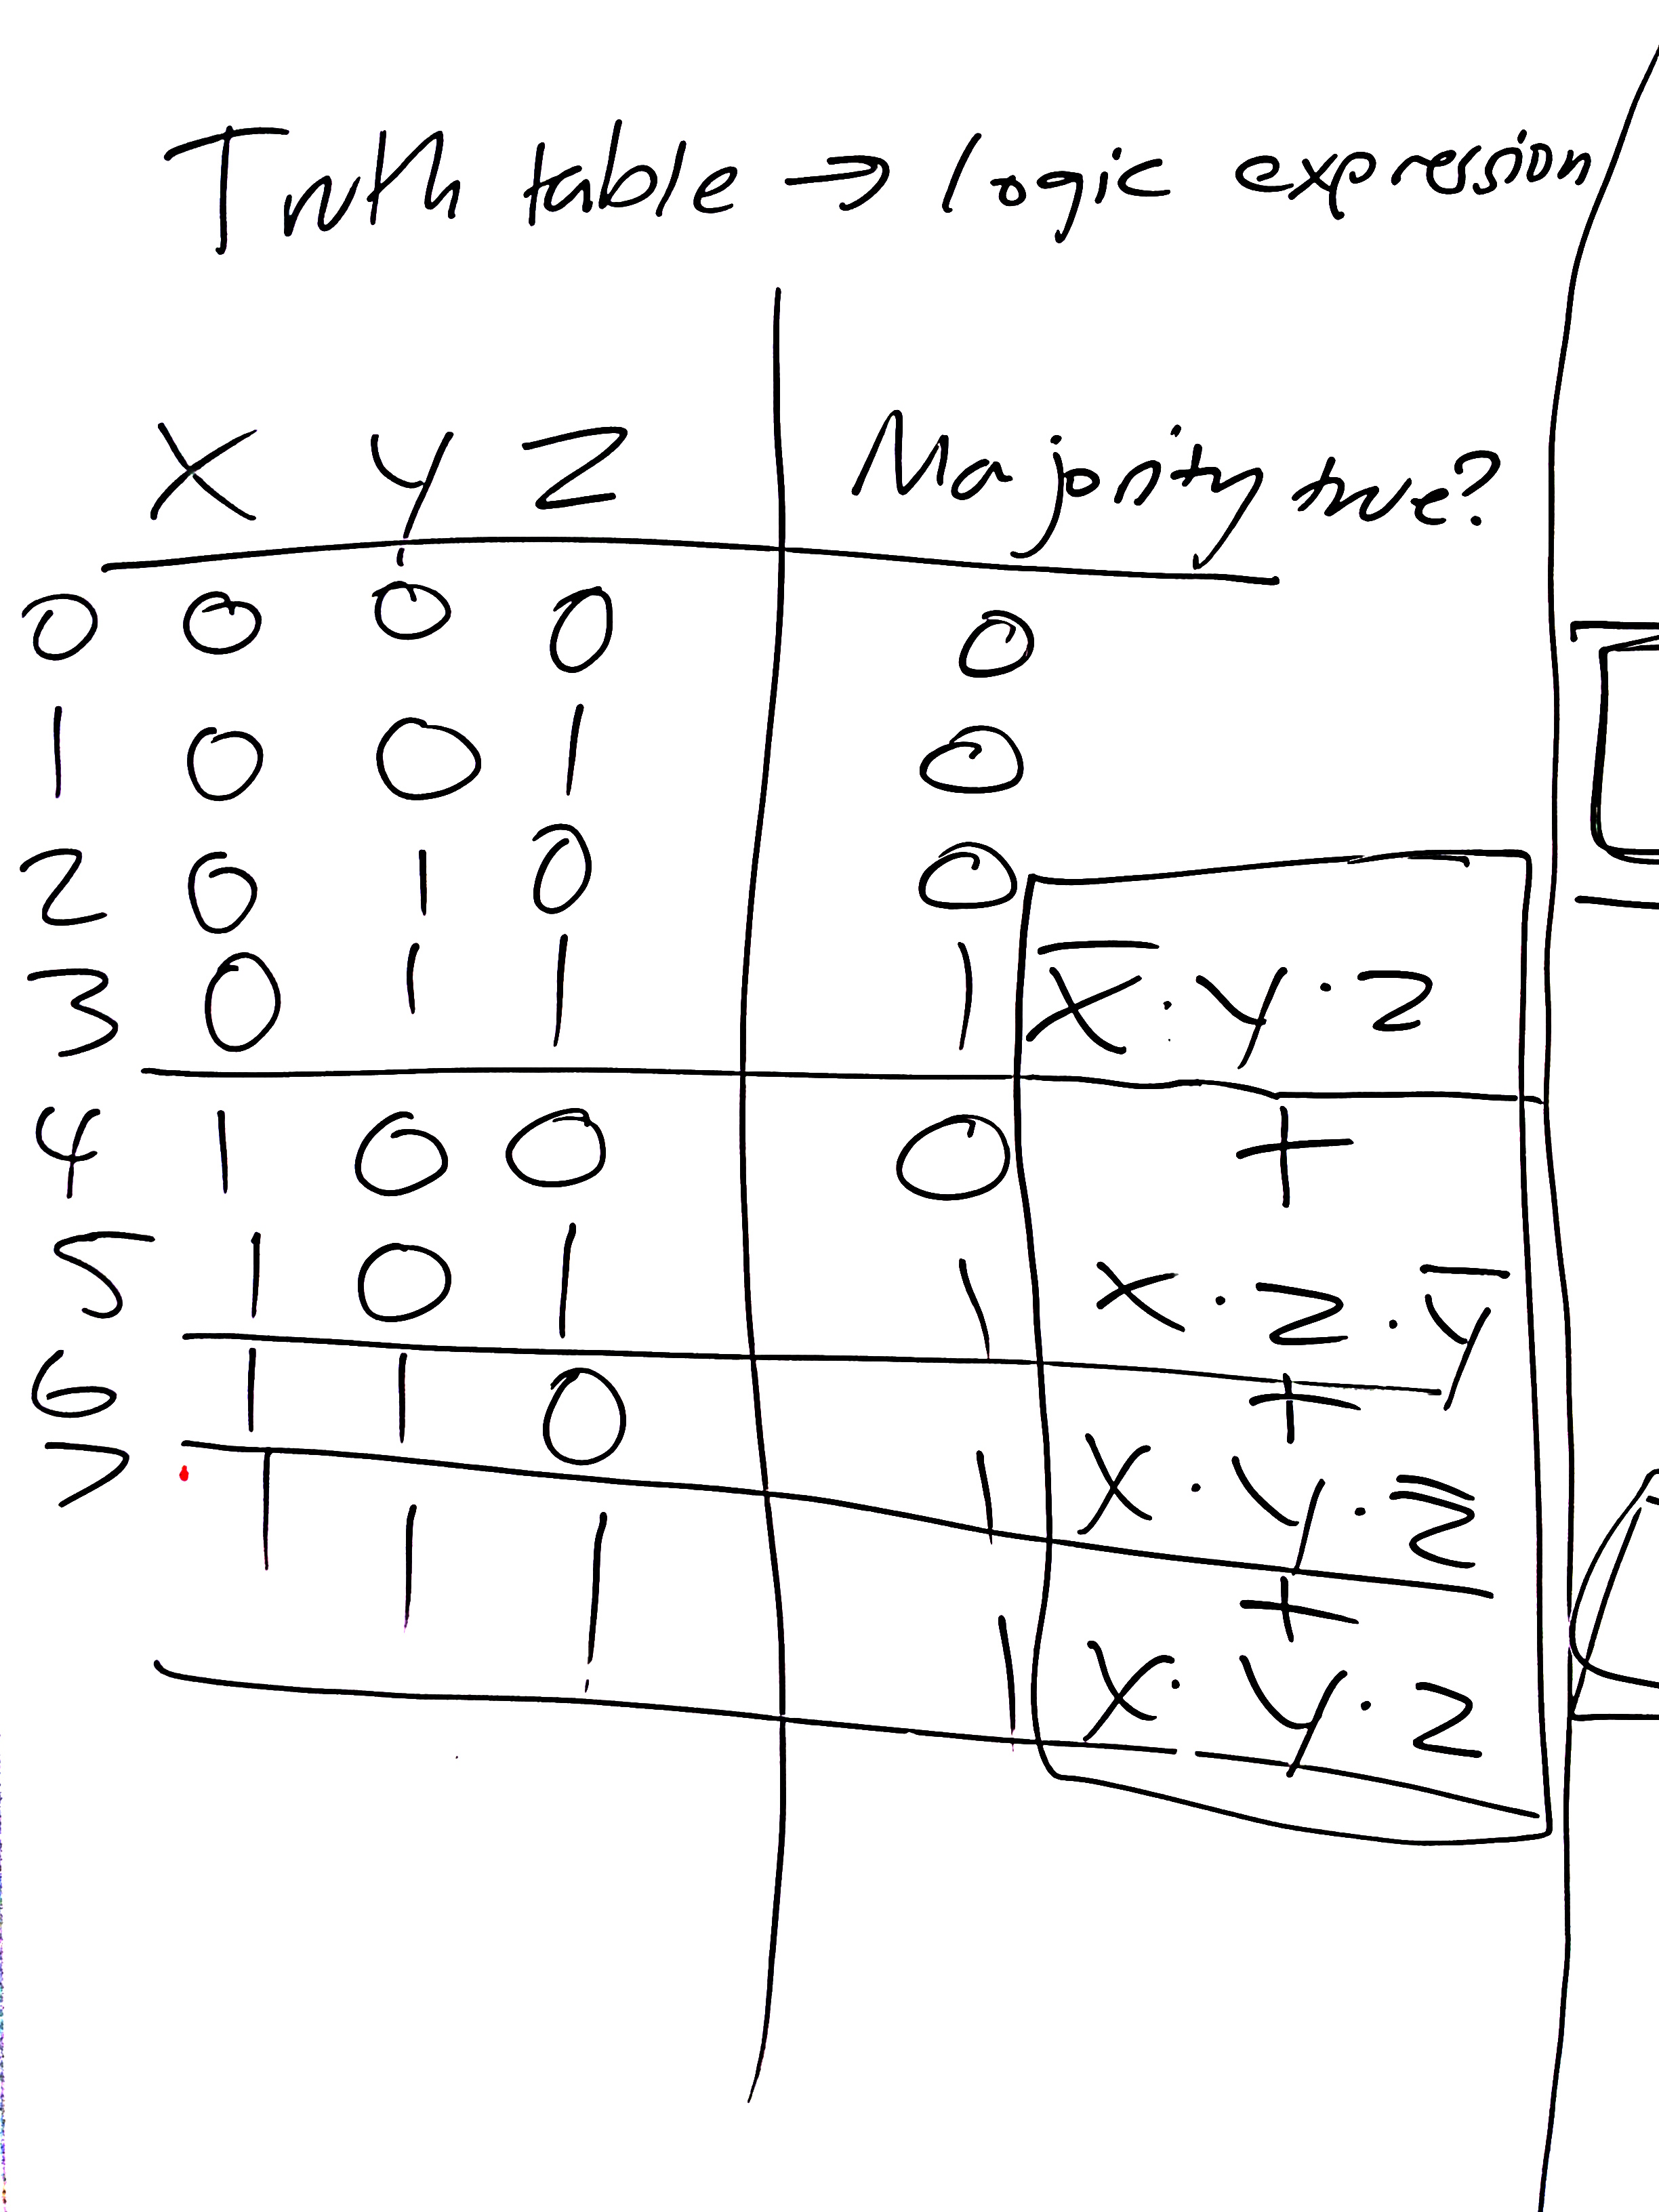 Truth table → logic expression
X Y Z Majority true?
0 0 0 0 0
1 0 0 1 0
2 0 1 0 0
3 0 1 1 1 X̅ · Y · Z
4 1 0 0 0 +
5 1 0 1 1 X · Z · Y̅
+
6 1 1 0 1 X · Y · Z̅
+
7 1 1 1 1 X · Y · Z